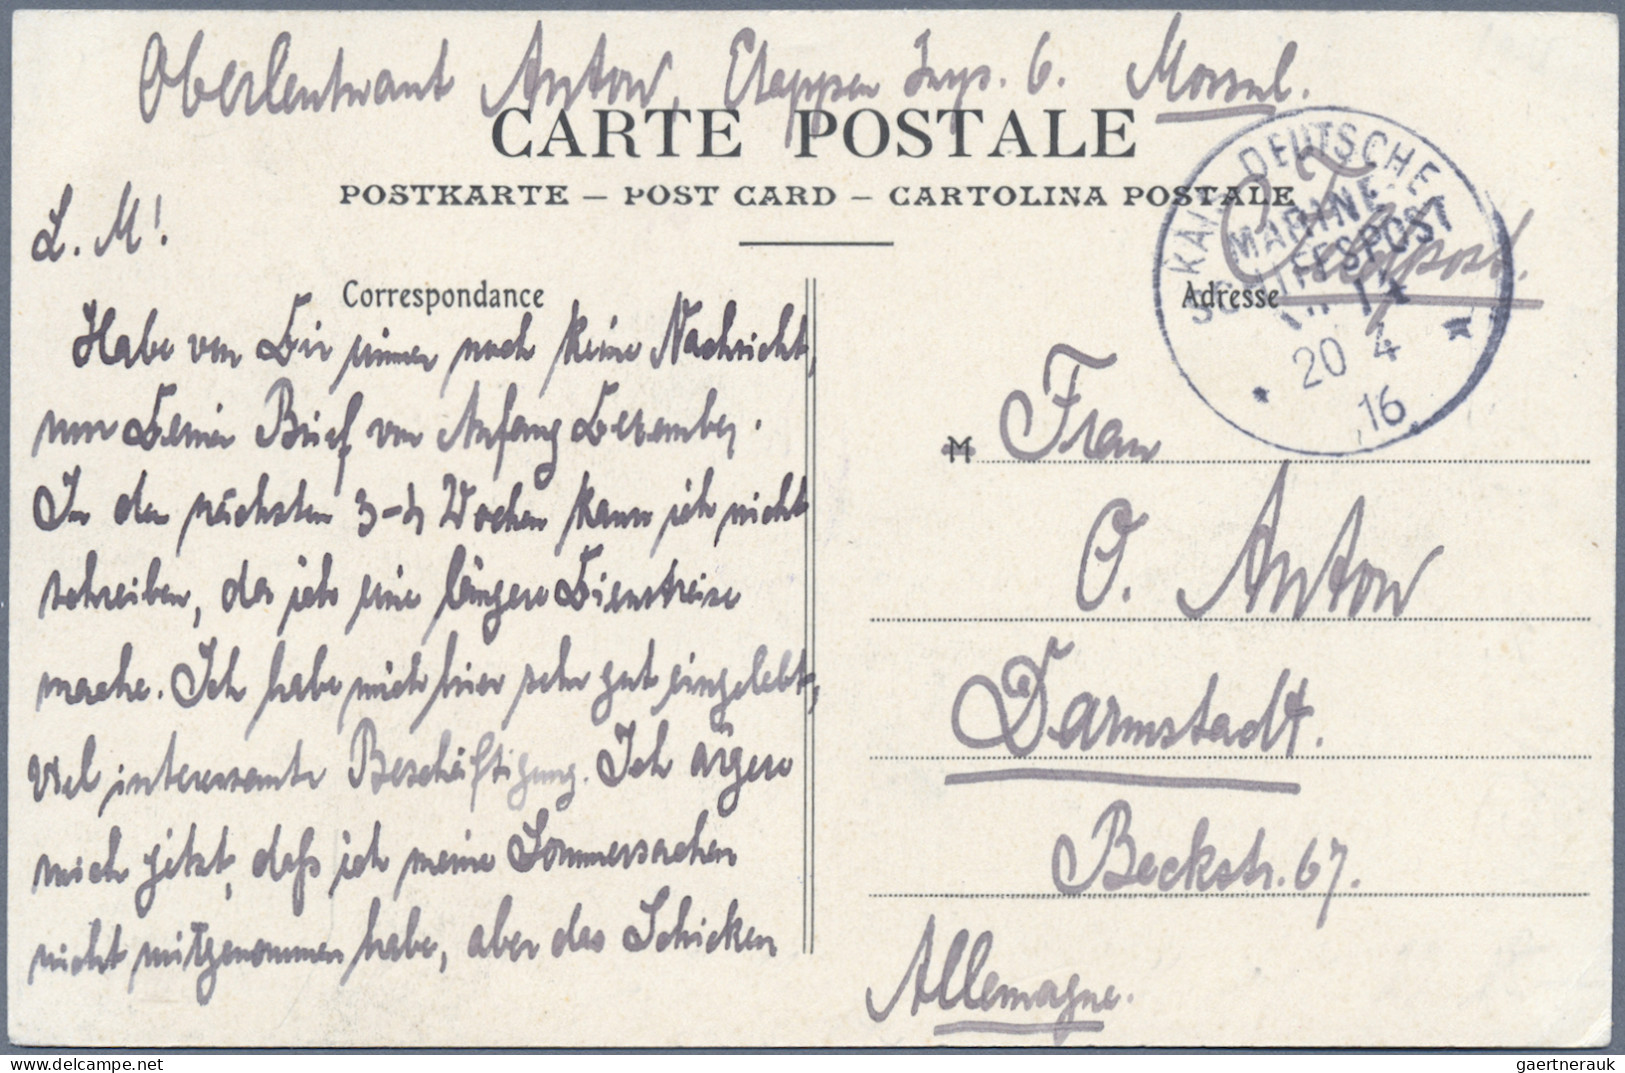 Oberleutnant Anton, Etappen Insp. 6. Mossul.
CARTE POSTALE
POSTKARTE – POST CARD – CARTOLINA POSTALE
KAIS. DEUTSCHE
MARINE-
SCHIFFSPOST
20 4
16
Feldpost.
L. M!
Correspondance
Habe von Dir immer noch keine Nachricht,
nur Deinen Brief von Anfang Dezember.
In den nächsten 3-4 Wochen kann ich nicht
schreiben, da ich eine längere Dienstreise
mache. Ich habe mich hier sehr gut eingelebt,
viel interessante Beschäftigung. Ich ärgere
mich jetzt, daß ich meine Sommersachen
nicht mitgenommen habe, aber das Schicken
Adresse
M Frau
O. Anton
Darmstadt.
Beckstr. 67.
Allemagne.
gaertnerauk